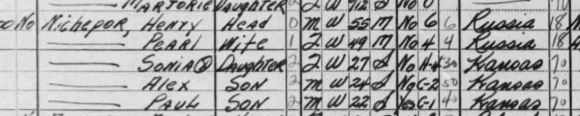 MARJORIE Daughter W No
No Nichepor, Henry Head 0 M W 55 M No 6 6 Russia 18
—— PEARL Wife 1 F W 49 M No 4 4 Russia 18
—— SONIA Daughter 2 F W 27 S No H-4 30 Kansas 70
—— Alex SON 2 M W 24 S No C-2 50 Kansas 70
—— PAUL SON 2 M W 22 S Yes C-1 40 Kansas 70